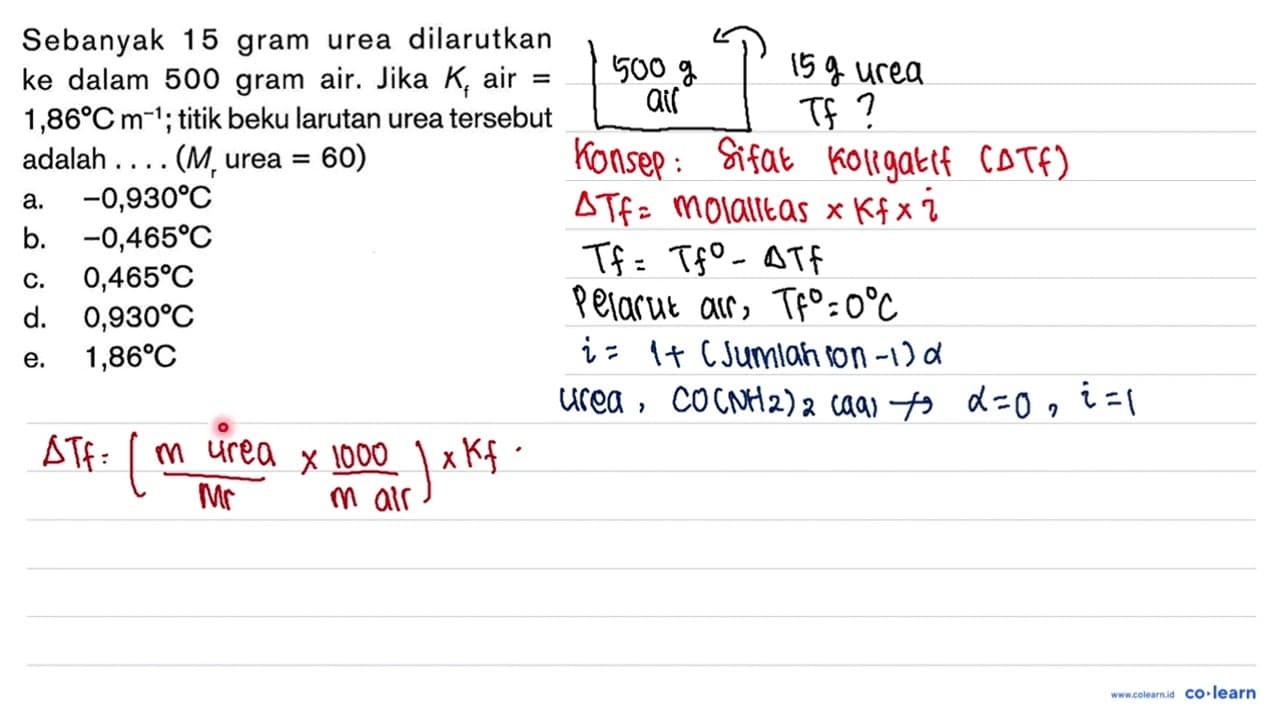 Sebanyak 15 gram urea dilarutkan
ke dalam 500 gram air. Jika Kf air =
1,86°C m⁻¹; titik beku larutan urea tersebut
adalah . . . . (Mr urea = 60)
a. −0,930°C
b. −0,465°C
c. 0,465°C
d. 0,930°C
e. 1,86°C
500 g
air
15 g urea
Tf ?
Konsep : Sifat Koligatif (ΔTf)
ΔTf = molalitas × Kf × i
Tf = Tf° − ΔTf
Pelarut air, Tf° = 0°C
i = 1 + (Jumlah ion − 1) α
urea, CO(NH2)2 (aq) ↛ α = 0, i = 1
ΔTf = ( m urea / Mr × 1000 / m air ) × Kf .
www.colearn.id co·learn